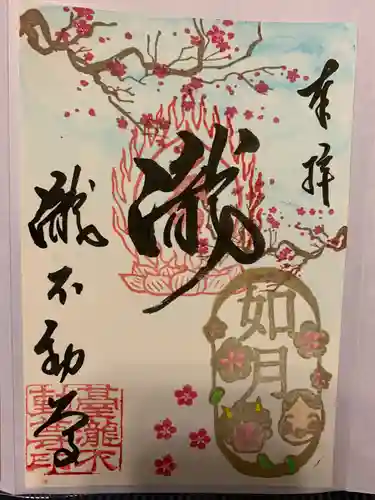 奉拝
瀧
瀧不動尊
如月